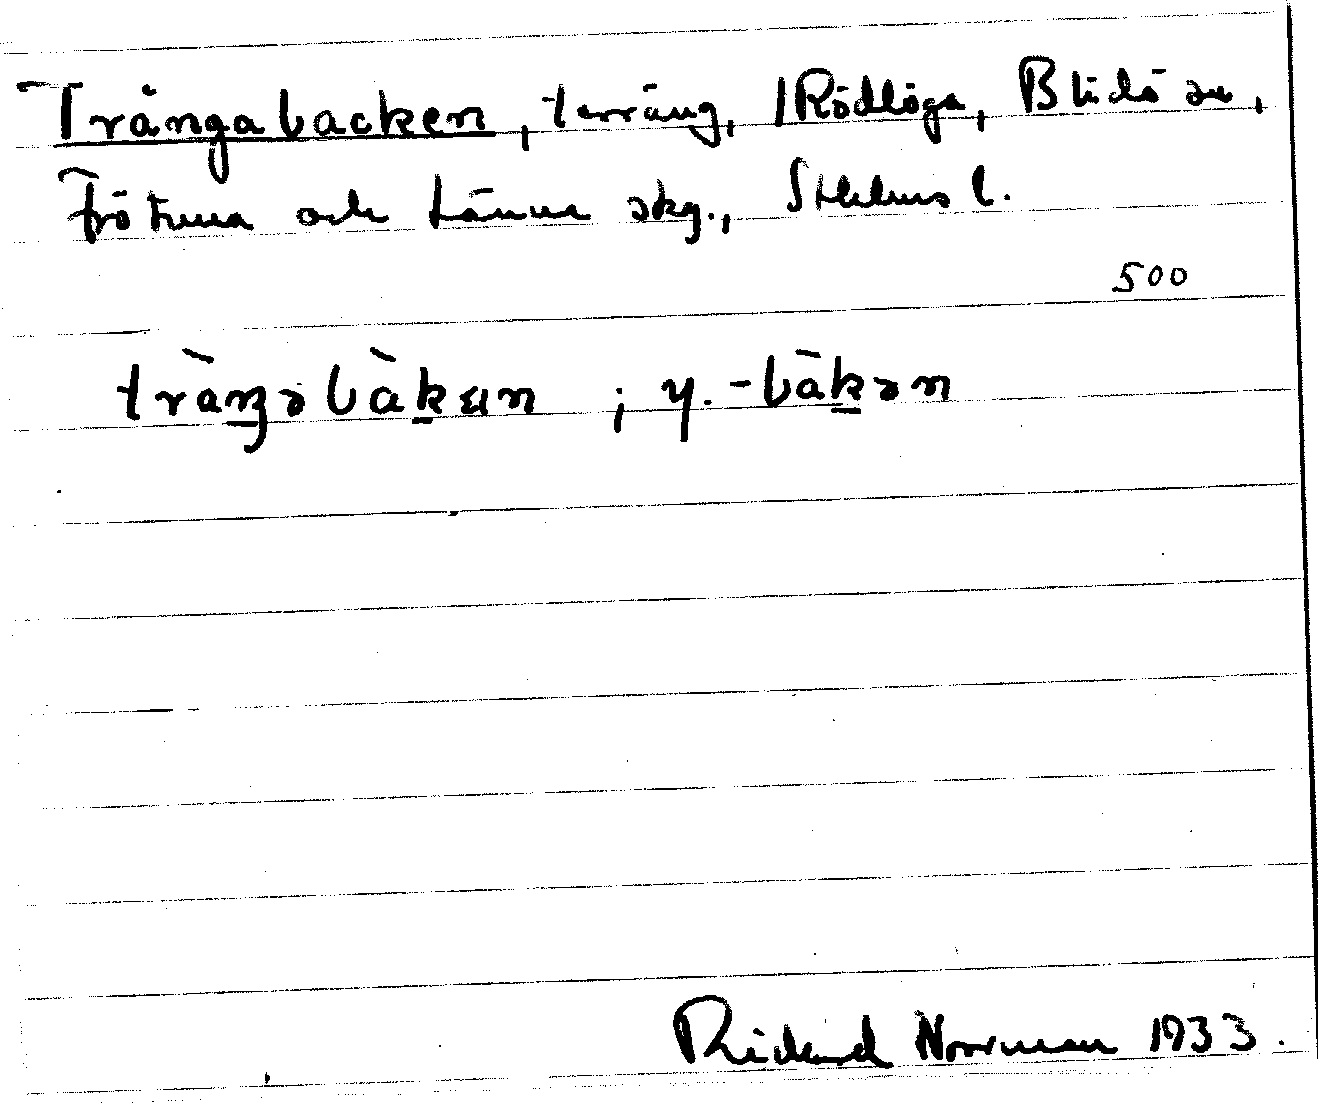 Trångabacken, terräng, Rödlöga, Blidö sn,
Frötuna och Länna skg., Sthlms l.
500
tràŋabàkɐn ; y. -bàkən
Rickard Norrman 1933.